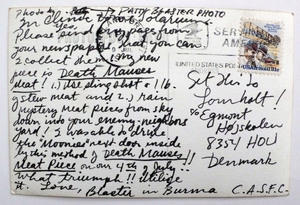 Photo by
PATTY BLASTER PHOTO
In Clinic Solarium
Yes
Please send every page from
your newspapers that you can
2 collect them. my new
piece is Death Mauses
Meat! 1.) the slingshot & 1 lb.
stew meat and 2.) rain
mystery meat pieces from sky
down into your enemy-neighbors
yard! I was able to drive
the Moonies next door inside
by this method of Death Mauses
Meat Piece on our 4th
What triumph!! Utilize
it. Love, Blaster in Burma C.A.S.F.C.
SERVING
AMERICA
UNITED STATES POSTAL
Get This to
Lomholt!
c/o Egmont
Højskolen
8354 HOU
Denmark